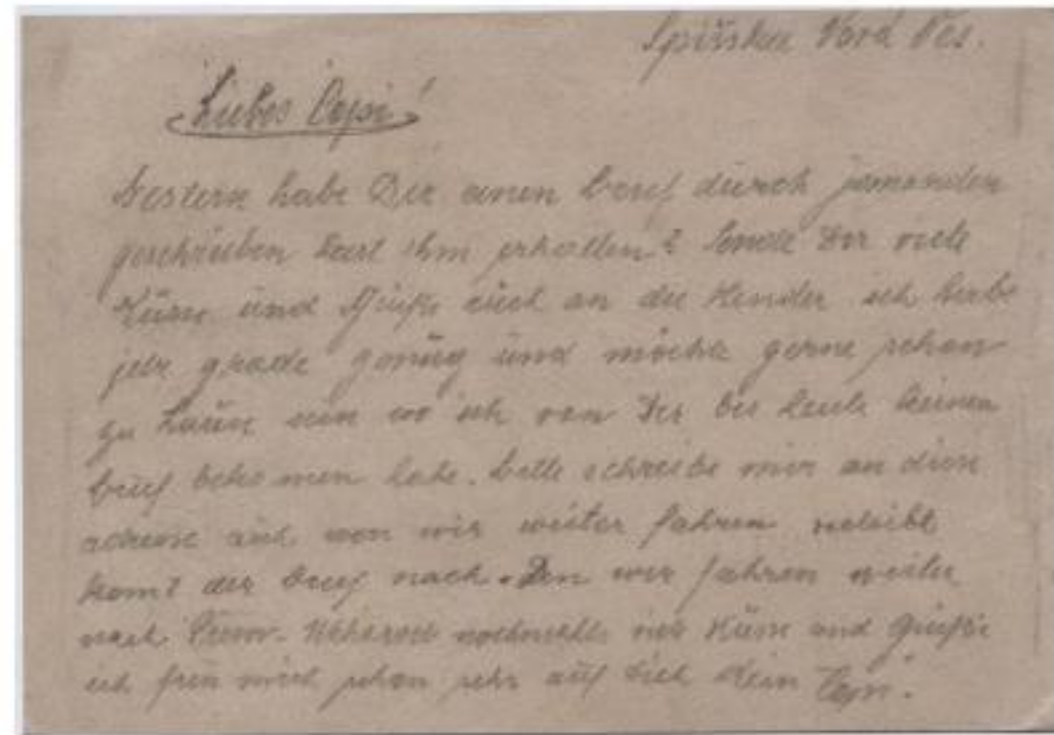 Spišska Nová Ves.
Liebes Pepi!
Gestern habe Dir einen brief durch jemanden
geschrieben hast ihm erhalten? Sende Dir viele
Küsse und Grüße auch an die Kender ich habe
jetz grade genüg und möchte gerne schon
zu Hause sein wo ich von Dir bis heute keinen
brief bekomen habe. bitte schreibe mir an diese
adresse auch wen wir weiter fahren
komt der brief nach. Den wir fahren weiter
nach nochmals viele Küsse und Grüße
ich freu mich schon sehr auf dich dein Pepi.